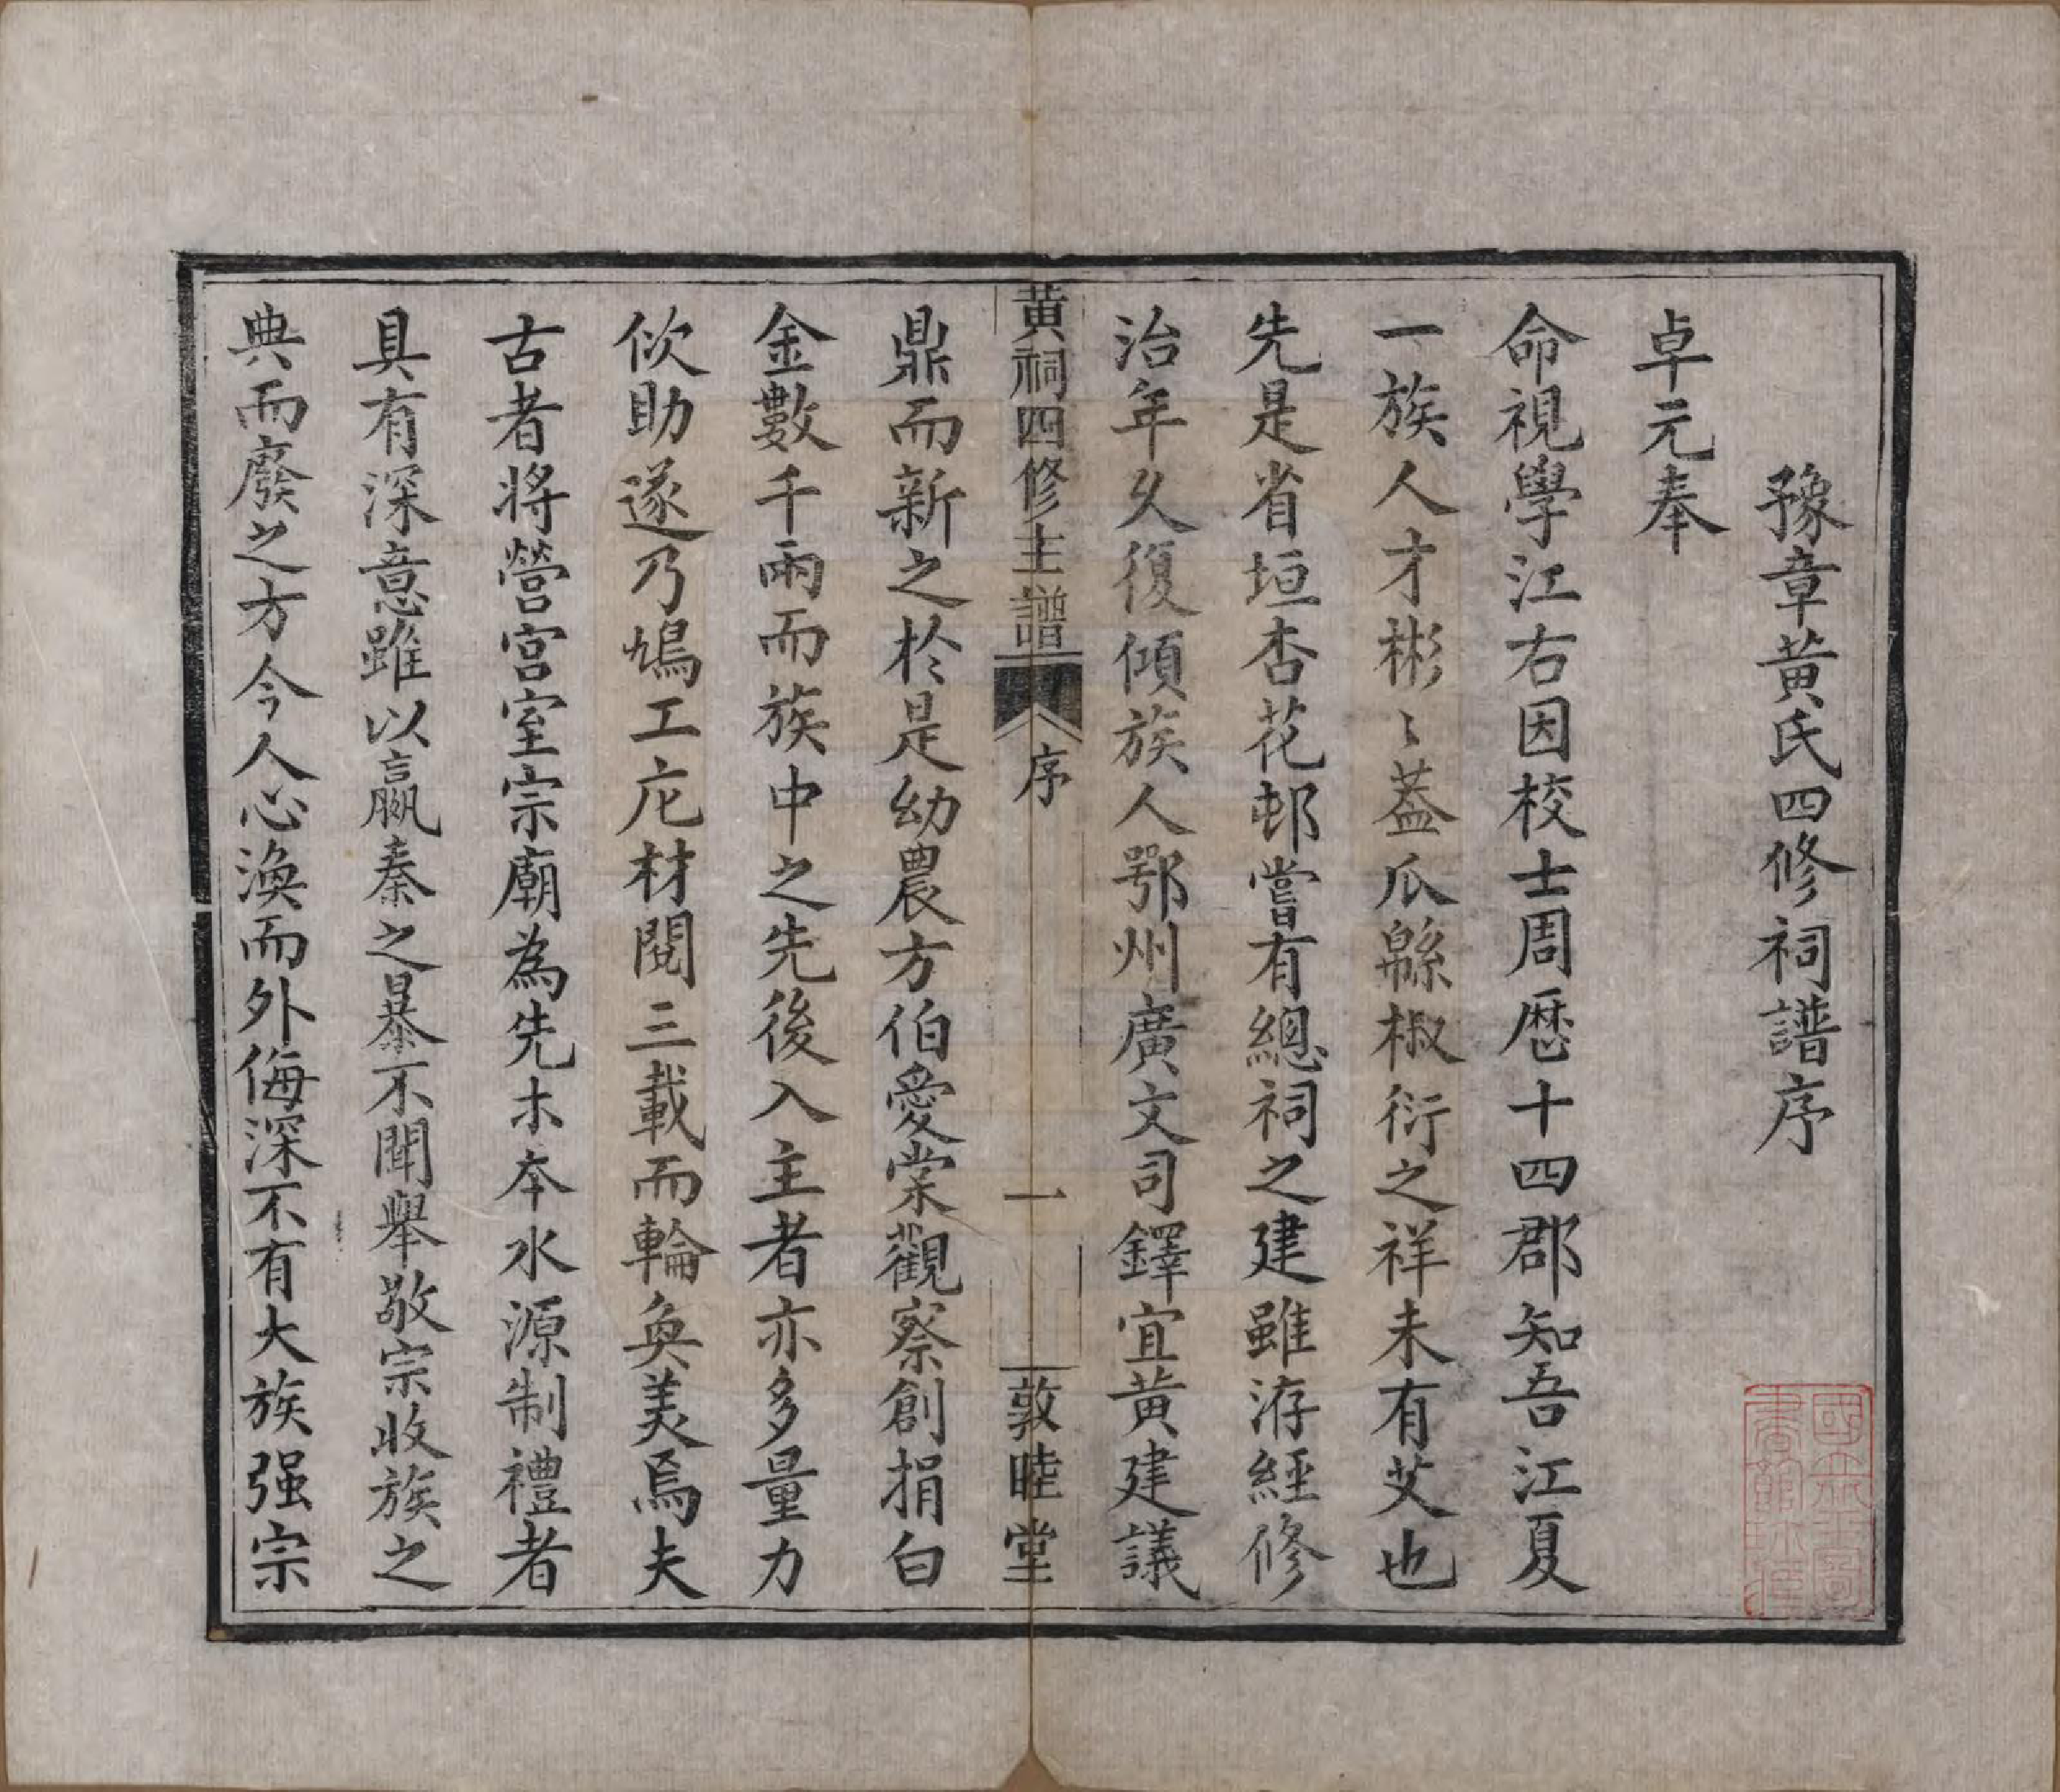 豫章黃氏四修祠譜序
卓元奉
命視學江右因校士周歷十四郡知吾江夏
一族人才彬〻葢瓜緜椒衍之祥未有艾也
先是省垣杏花邨嘗有總祠之建雖洊經修
治年久復傾族人鄂州廣文司鐸宜黃建議
黃祠四修主譜 序 一 敦睦堂
鼎而新之於是幼農方伯愛棠觀察創捐白
金數千兩而族中之先後入主者亦多量力
佽助遂乃鳩工庀材閱三載而輪奐美焉夫
古者將營宮室宗廟為先木本水源制禮者
具有深意雖以嬴秦之暴不聞舉敬宗收族之
典而廢之方今人心渙而外侮深不有大族强宗